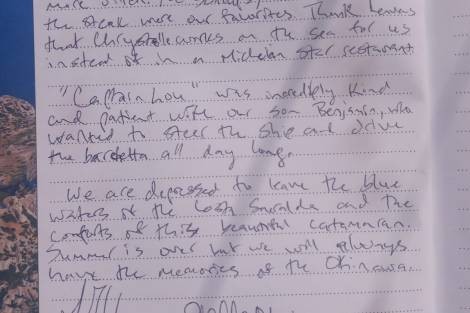 the steak were our favorites. Thank heavens
that Chrystelle works on the sea for us
instead of in a Michelan star restaurant
"Captain Lou" was incredibly kind
and patient with our son Benjamin, who
wanted to steer the ship and drive
the barchetta all day long.
We are depressed to leave the blue
waters of the Costa Smeralda and the
comforts of this beautiful catamaran.
Summer is over but we will always
have the memories of the Okinawa.